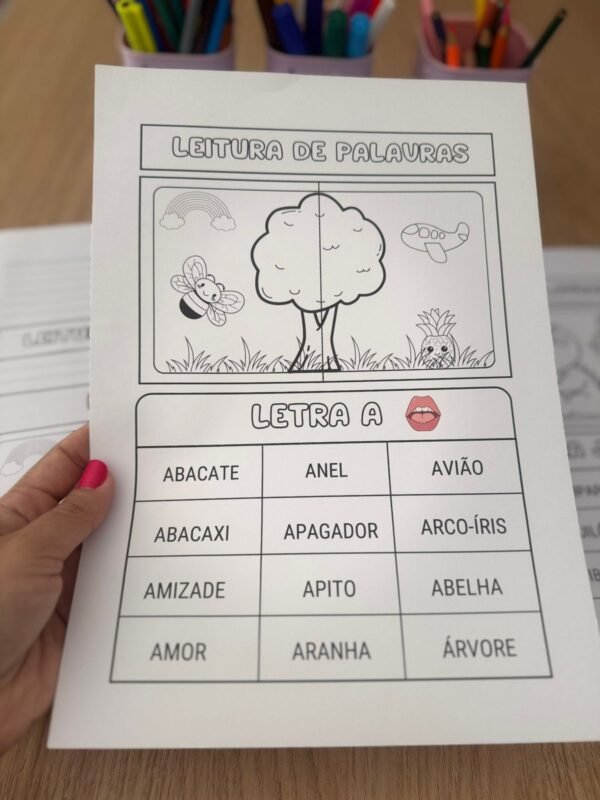 LEITURA DE PALAVRAS
LETRA A
ABACATE ANEL AVIÃO
ABACAXI APAGADOR ARCO-ÍRIS
AMIZADE APITO ABELHA
AMOR ARANHA ÁRVORE